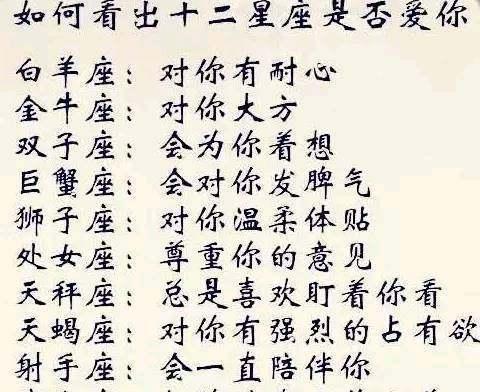 如何看出十二星座是否爱你
白羊座：对你有耐心
金牛座：对你大方
双子座：会为你着想
巨蟹座：会对你发脾气
狮子座：对你温柔体贴
处女座：尊重你的意见
天秤座：总是喜欢盯着你看
天蝎座：对你有强烈的占有欲
射手座：会一直陪伴你